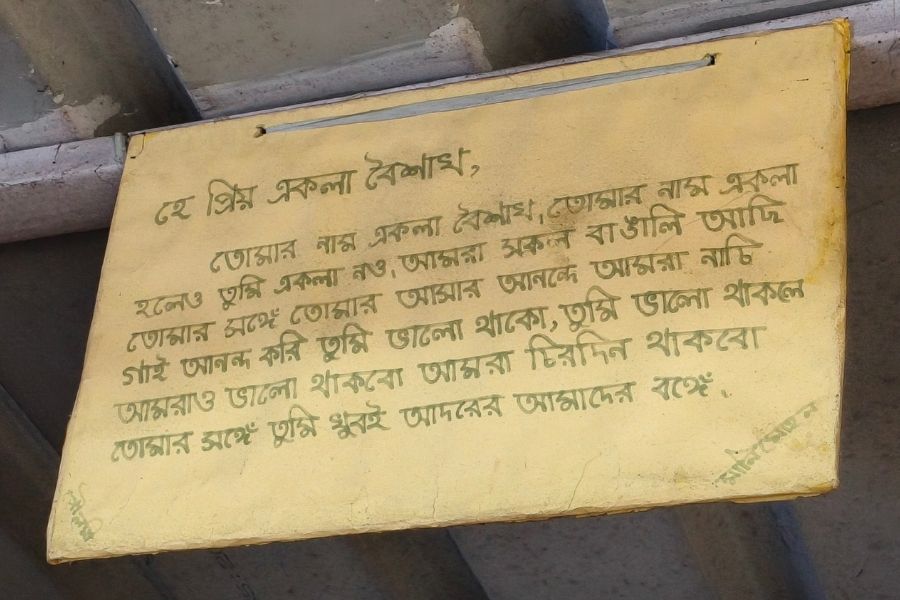 হে প্রিয় একলা বৈশাখ,
তোমার নাম একলা বৈশাখ, তোমার নাম একলা
হলেও তুমি একলা নও, আমরা সকল বাঙালি আছি
তোমার সঙ্গে তোমার আসার আনন্দে আমরা নাচি
গাই আনন্দ করি তুমি ভালো থাকো, তুমি ভালো থাকলে
আমরাও ভালো থাকবো আমরা চিরদিন থাকবো
তোমার সঙ্গে তুমি খুবই আদরের আমাদের বঙ্গে.